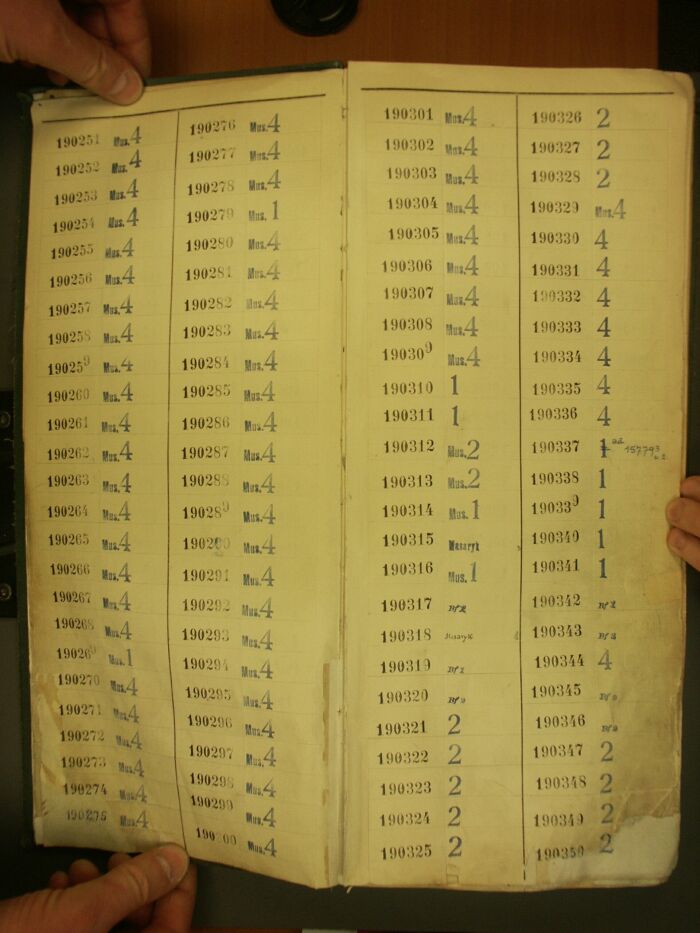 190251 Mus. 4
190252 Mus. 4
190253 Mus. 4
190254 Mus. 4
190255 Mus. 4
190256 Mus. 4
190257 Mus. 4
190258 Mus. 4
190259 Mus. 4
190260 Mus. 4
190261 Mus. 4
190262 Mus. 4
190263 Mus. 4
190264 Mus. 4
190265 Mus. 4
190266 Mus. 4
190267 Mus. 4
190268 Mus. 4
190269 Mus. 1
190270 Mus. 4
190271 Mus. 4
190272 Mus. 4
190273 Mus. 4
190274 Mus. 4
190275 Mus. 4
190276 Mus. 4
190277 Mus. 4
190278 Mus. 4
190279 Mus. 1
190280 Mus. 4
190281 Mus. 4
190282 Mus. 4
190283 Mus. 4
190284 Mus. 4
190285 Mus. 4
190286 Mus. 4
190287 Mus. 4
190288 Mus. 4
190289 Mus. 4
190290 Mus. 4
190291 Mus. 4
190292 Mus. 4
190293 Mus. 4
190294 Mus. 4
190295 Mus. 4
190296 Mus. 4
190297 Mus. 4
190298 Mus. 4
190299 Mus. 4
190300 Mus. 4
190301 Mus. 4
190302 Mus. 4
190303 Mus. 4
190304 Mus. 4
190305 Mus. 4
190306 Mus. 4
190307 Mus. 4
190308 Mus. 4
190309 Mus. 4
190310 1
190311 1
190312 Mus. 2
190313 Mus. 2
190314 Mus. 1
190315 Masaryk
190316 Mus. 1
190317
190318 Masaryk
190319
190320
190321 2
190322 2
190323 2
190324 2
190325 2
190326 2
190327 2
190328 2
190329 Mus. 4
190330 4
190331 4
190332 4
190333 4
190334 4
190335 4
190336 4
190337 1 ad 157793
190338 1
190339 1
190340 1
190341 1
190342
190343
190344 4
190345
190346
190347 2
190348 2
190349 2
190350 2